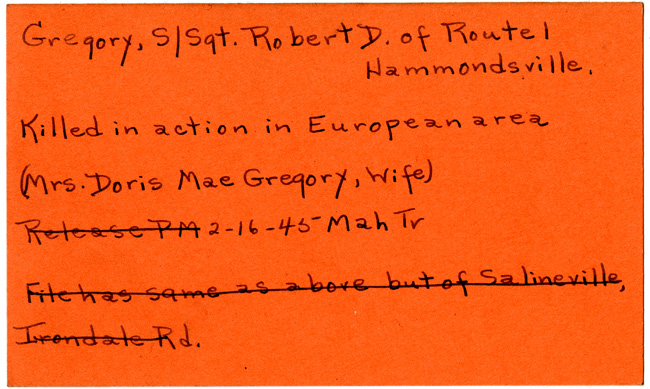 Gregory, S/Sgt. Robert D. of Route 1
Hammondsville.
Killed in action in European area
(Mrs. Doris Mae Gregory, Wife)
Release PM 2-16-45 Mah Tr
File has same as above but of Salineville,
Irondale Rd.